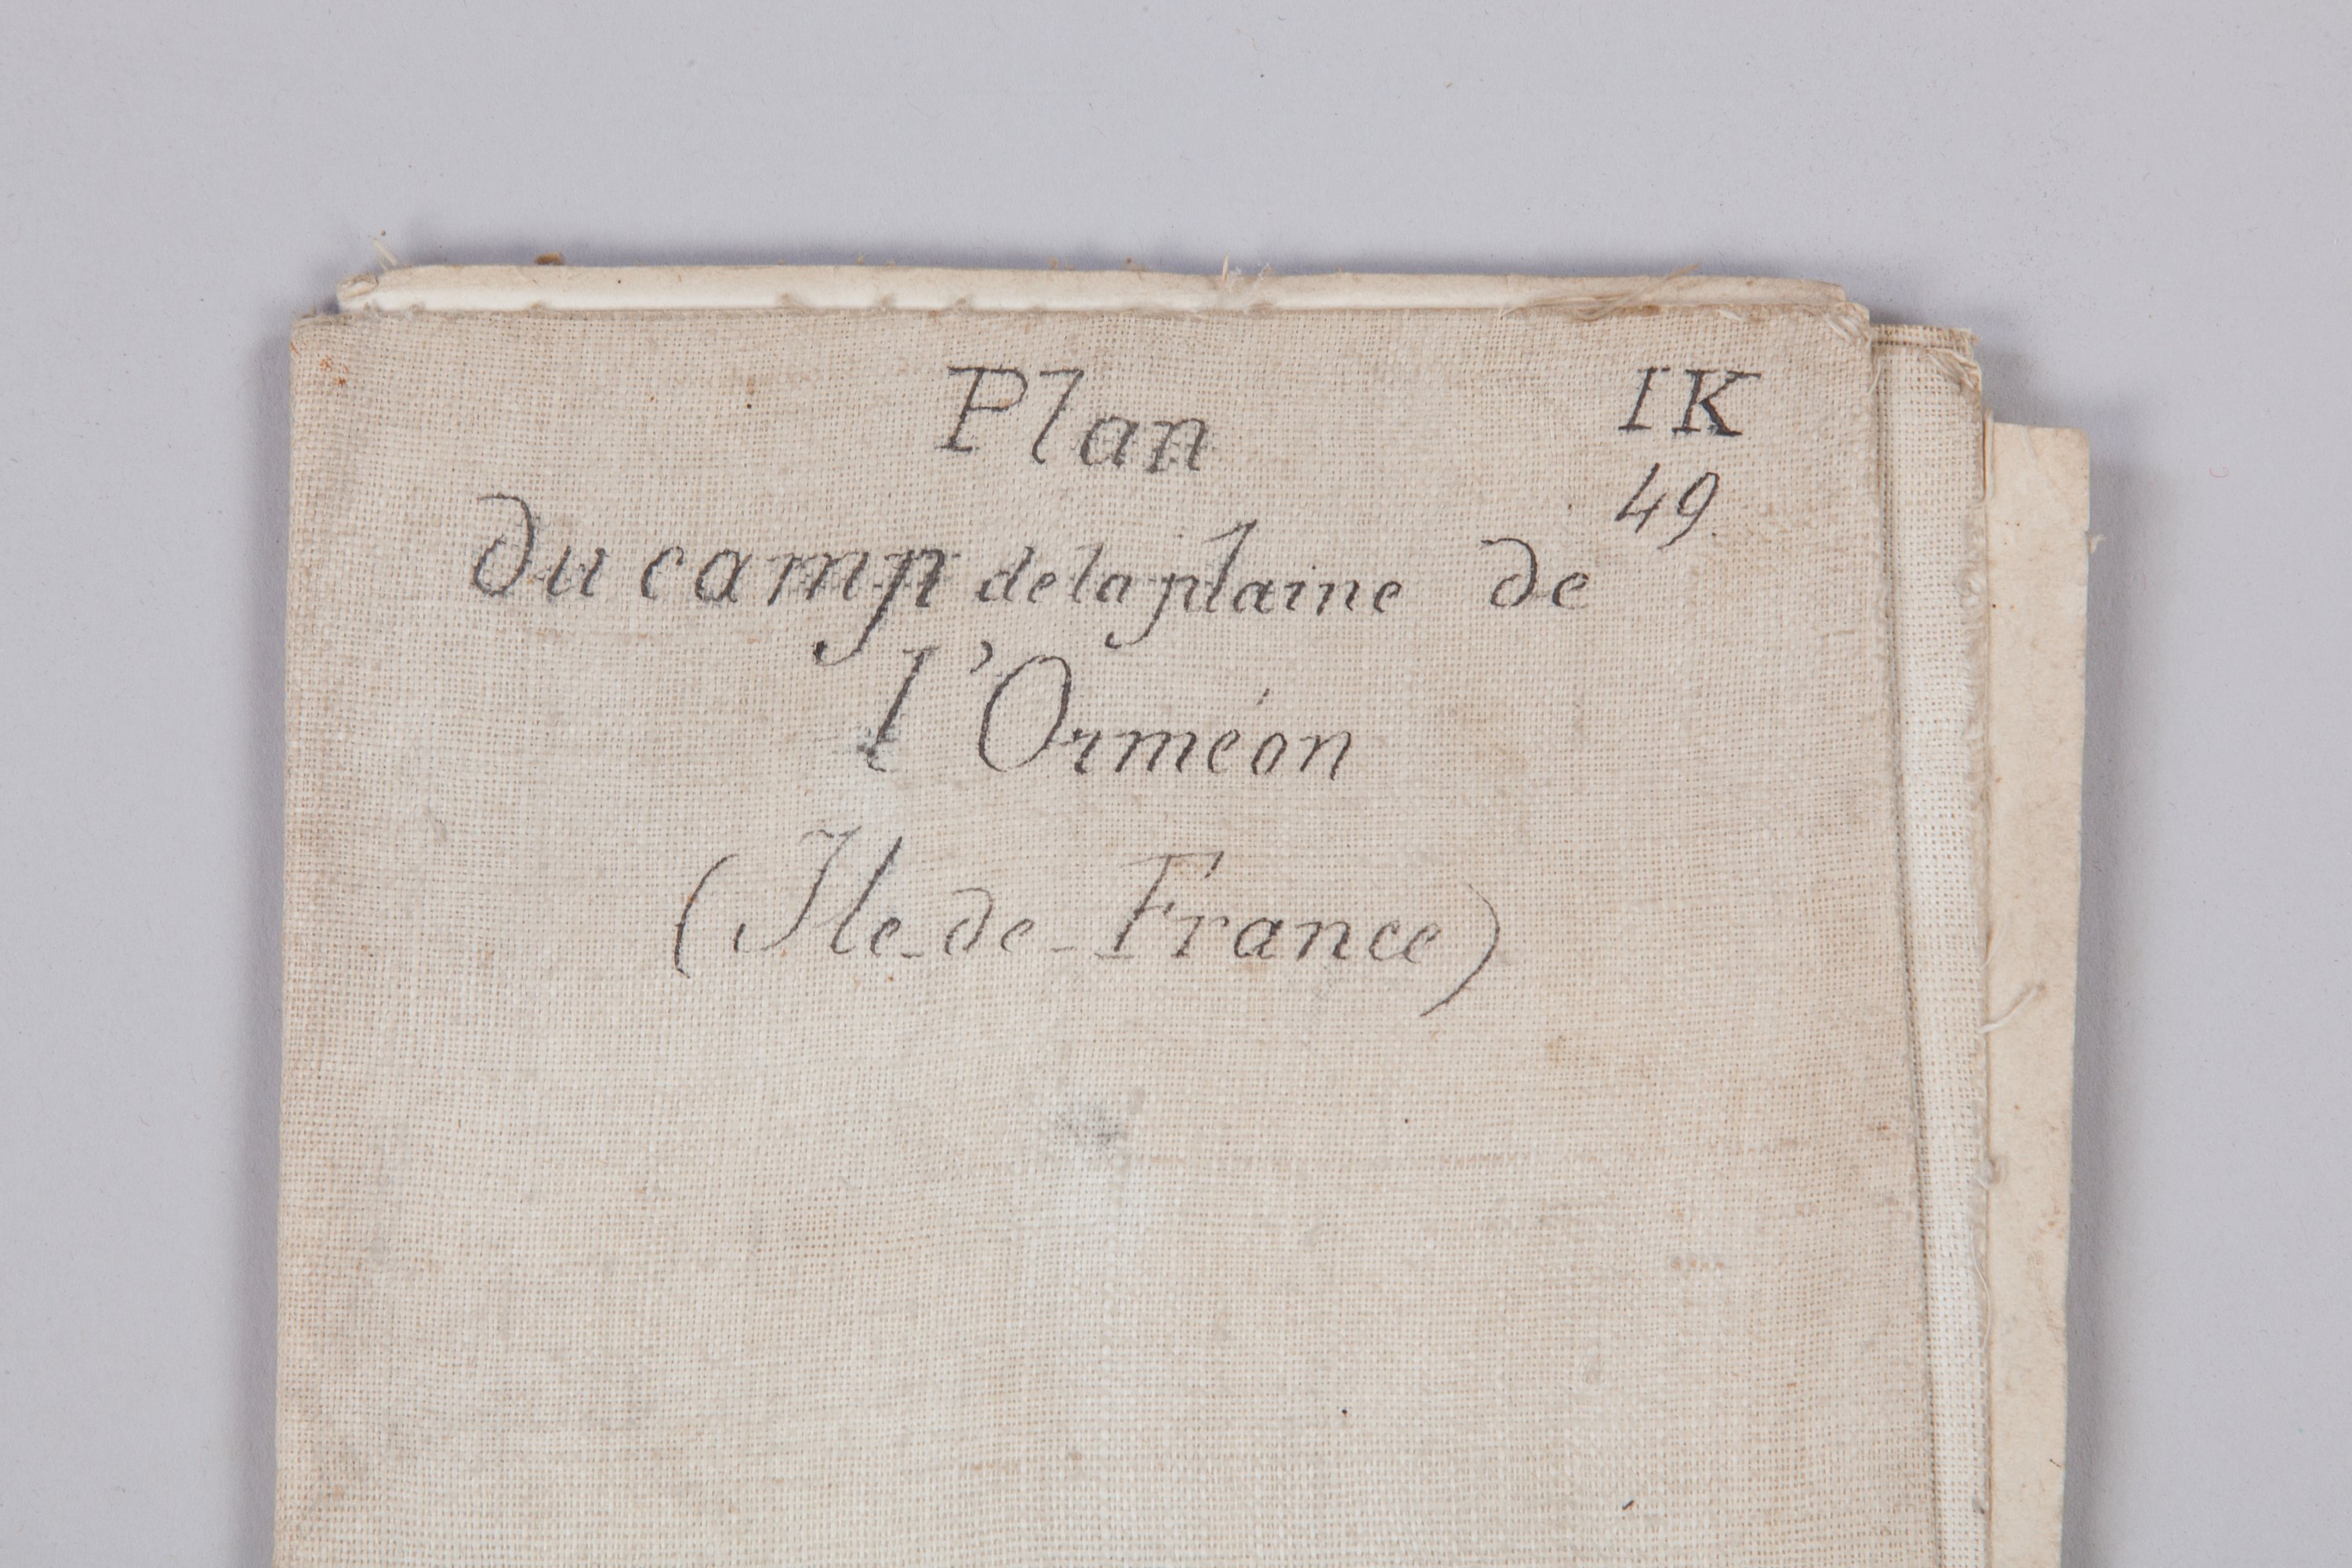 Plan
IK
49.
du camp de la plaine de
l'Orméon
(Ile-de-France)